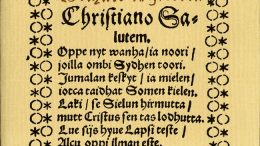 Christiano Sa-
lutem.
Oppe nyt wanha/ ia noori/
joilla ombi Sydhen toori.
Jumalan keskyt/ ia mielen/
iotca taidhat Somen kielen.
Laki/ se Sielun hirmutta/
mutt Cristus sen tas lodhutta.
Lue sijs hyue Lapsi teste/
Alcu oppi ilman este.